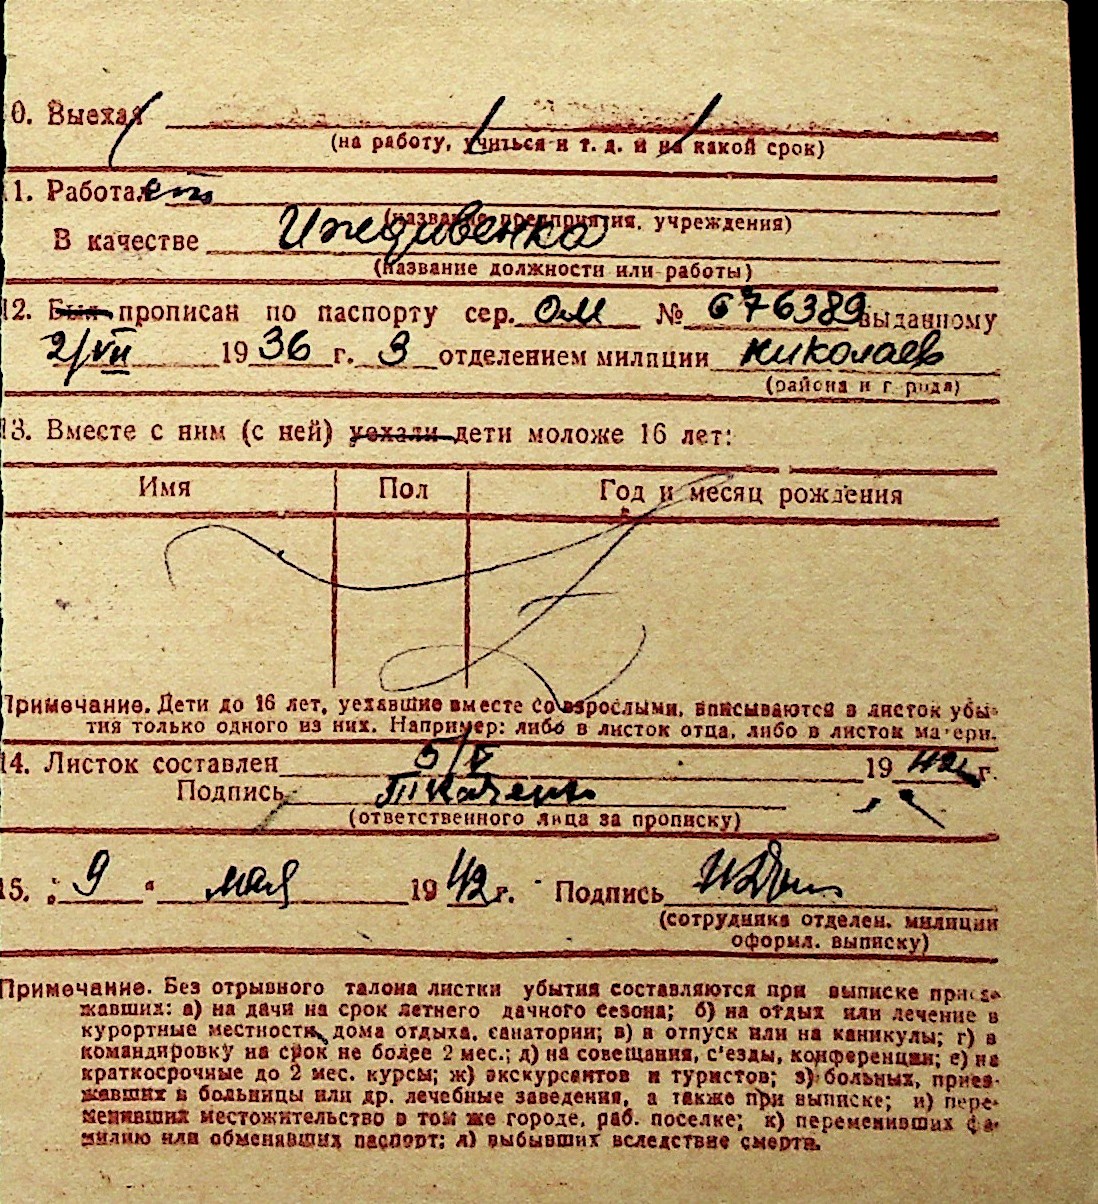 0. Выехал
(на работу, учиться и т. д. и на какой срок)
1. Работает
(название предприятия, учреждения)
В качестве Иждивенка
(название должности или работы)
12. Был прописан по паспорту сер. ОМ № 676389 выданному
2/VII 1936 г. 3 отделением милиции Николаев
(района и города)
13. Вместе с ним (с ней) уехали дети моложе 16 лет:
Имя Пол Год и месяц рождения
Примечание. Дети до 16 лет, уехавшие вместе со взрослыми, вписываются в листок убы-
тия только одного из них. Например: либо в листок отца, либо в листок матери.
14. Листок составлен 5/V 1942 г.
Подпись Ткаченко
(ответственного лица за прописку)
15. „9“ мая 1942 г. Подпись
(сотрудника отделен. милиции
оформл. выписку)
Примечание. Без отрывного талона листки убытия составляются при выписке приез-
жавших: а) на дачи на срок летнего дачного сезона; б) на отдых или лечение в
курортные местности, дома отдыха, санатории; в) в отпуск или на каникулы; г) в
командировку на срок не более 2 мес.; д) на совещания, с'езды, конференции; е) на
краткосрочные до 2 мес. курсы; ж) экскурсантов и туристов; з) больных, приез-
жавших в больницы или др. лечебные заведения, а также при выписке; и) пере-
менивших местожительство в том же городе, раб. поселке; к) переменивших фа-
милию или обменявших паспорт; л) выбывших вследствие смерти.